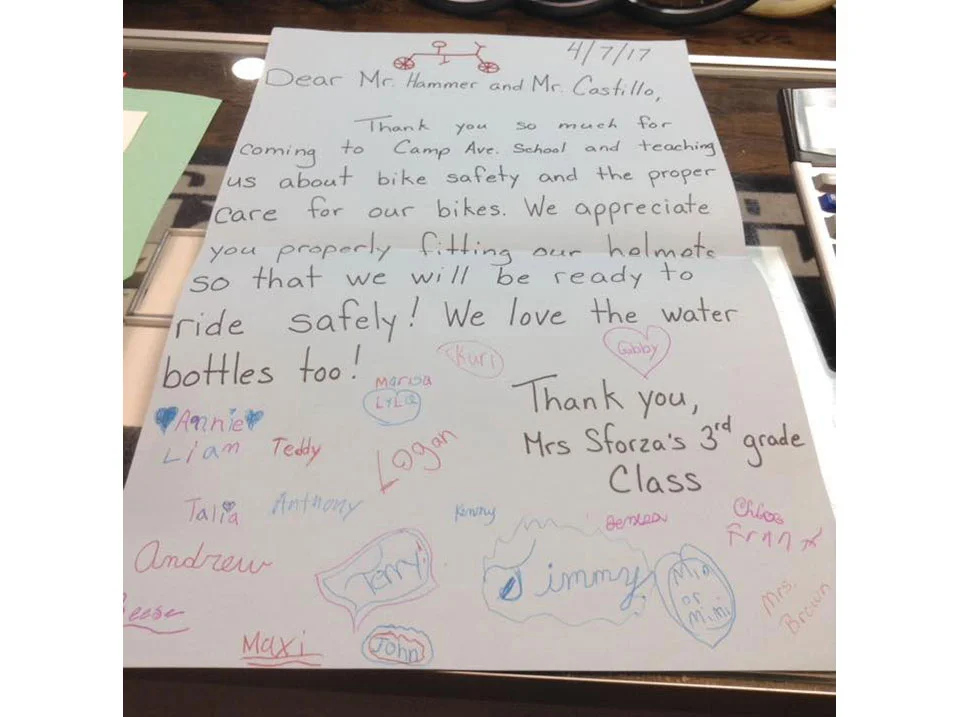 4/7/17
Dear Mr. Hammer and Mr. Castillo,
Thank you so much for
coming to Camp Ave. School and teaching
us about bike safety and the proper
care for our bikes. We appreciate
you properly fitting our helmets
so that we will be ready to
ride safely! We love the water
bottles too!
Kuri
Gabby
Marisa
Lyla
Thank you,
Mrs Sforza's 3rd grade
Class
Annie
Liam
Teddy
Logan
Talia
Anthony
Kenny
Chloe
Fran
Andrew
Terry
Jimmy
Mia
or
Mimi
Mrs.
Brown
Maxi
John